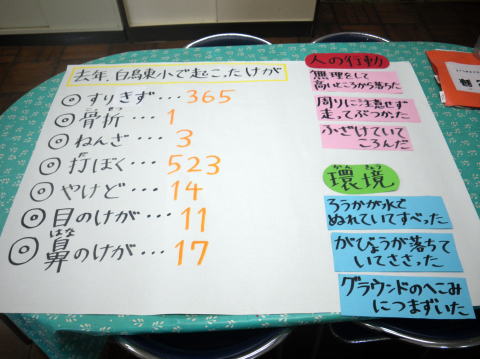 去年、白鳥東小で起こったけが
◎すりきず…365
◎骨折…1
こっせつ
◎ねんざ…3
◎打ぼく…523
だ
◎やけど…14
◎目のけが…11
◎鼻のけが…17
はな
人の行動
無理をして
高いところから落ちた
周りに注意せず
走ってぶつかった
ふざけていて
ころんだ
かんきょう
環境
ろうかが水で
ぬれていてすべった
がびょうが落ちて
いてささった
グラウンドのへこみ
につまずいた